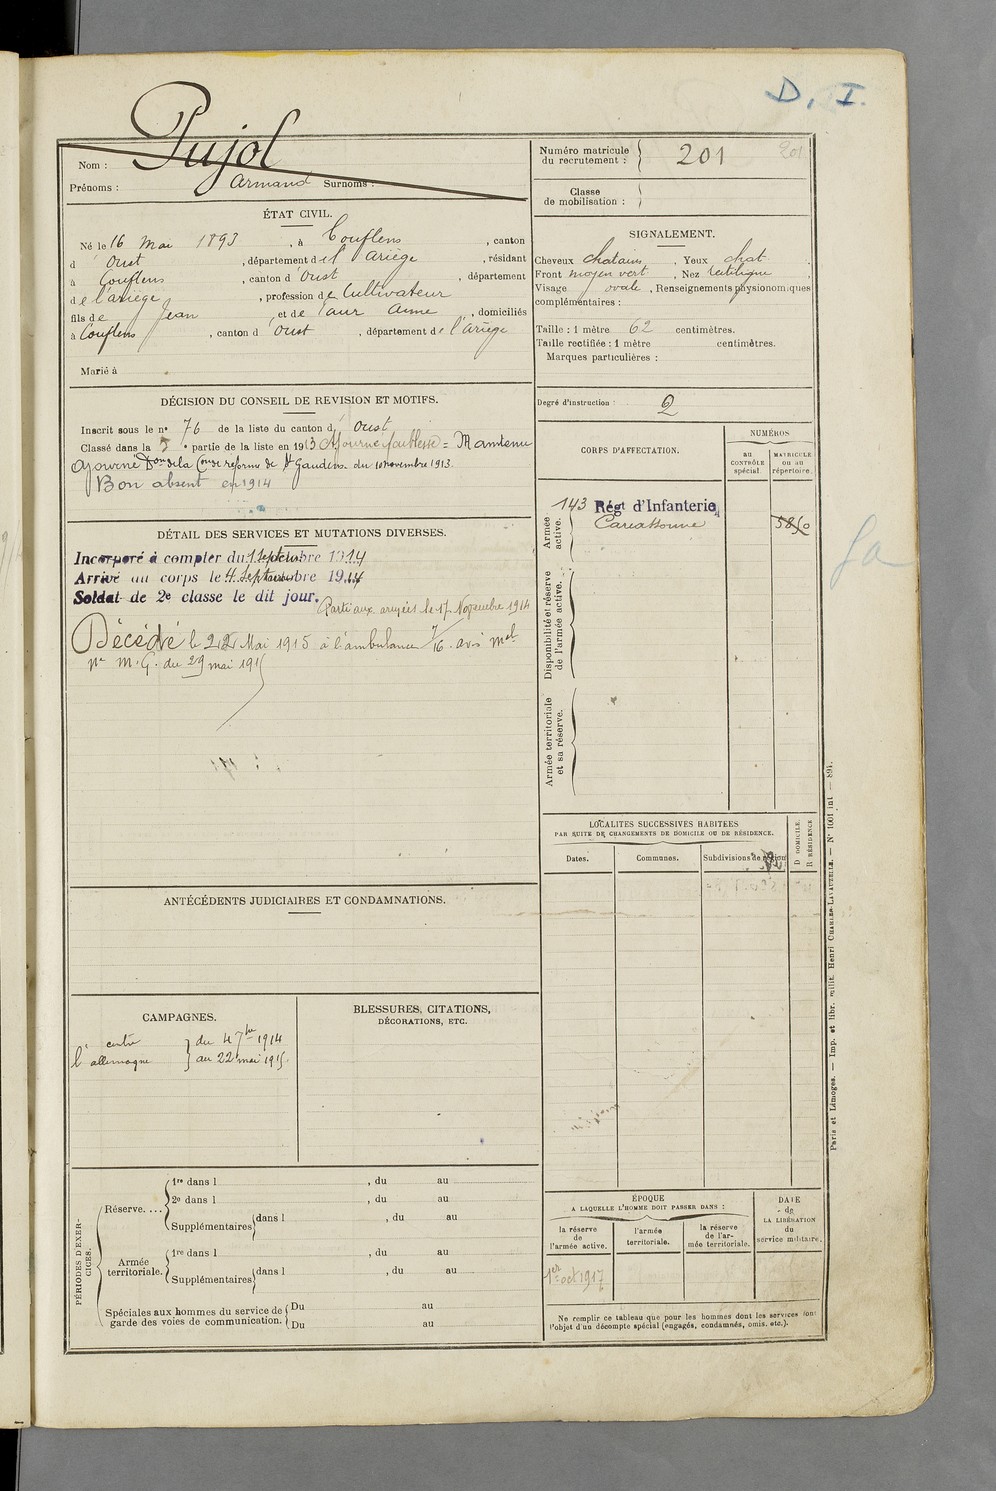 D. I.
Nom : Pujol
Prénoms : Armand Surnoms :
Numéro matricule du recrutement : 201
201
Classe de mobilisation :
ÉTAT CIVIL.
Né le 16 Mai 1893, à Couflens, canton
d'Oust, département de l'Ariège, résidant
à Couflens, canton d'Oust, département
de l'ariège, profession de Cultivateur
fils de Jean, et de Anne, domiciliés
à Couflens, canton d'Oust, département de l'Ariège
Marié à
SIGNALEMENT.
Cheveux chatains, Yeux chat.
Front moyen vert, Nez rectiligne,
Visage ovale, Renseignements physionomiques
complémentaires :
Taille : 1 mètre 62 centimètres.
Taille rectifiée : 1 mètre centimètres.
Marques particulières :
DÉCISION DU CONSEIL DE REVISION ET MOTIFS.
Inscrit sous le n° 76 de la liste du canton d'Oust
Classé dans la 5e partie de la liste en 1913 Ajourné faiblesse = Maintenu
ajourné Don de la Con de réforme de St Gaudens du 10 novembre 1913.
Bon absent en 1914
Degré d'instruction : 2
CORPS D'AFFECTATION.
NUMÉROS
au CONTRÔLE spécial.
MATRICULE ou au répertoire.
Armée active.
143 Régt d'Infanterie
Carcassonne
5850
Disponibilité et réserve de l'armée active.
Armée territoriale et sa réserve.
DÉTAIL DES SERVICES ET MUTATIONS DIVERSES.
Incorporé à compter du 1 Septembre 1914
Arrivé au corps le 4 Septembre 1914
Soldat de 2e classe le dit jour.
Parti aux armées le 17 Novembre 1914
Décédé le 22 Mai 1915 à l'ambulance 7/16. avis mel
nr M.G. du 29 mai 1915
LOCALITÉS SUCCESSIVES HABITÉES
PAR SUITE DE CHANGEMENTS DE DOMICILE OU DE RÉSIDENCE.
Dates.
Communes.
Subdivisions de région
D DOMICILE.
R RÉSIDENCE
ANTÉCÉDENTS JUDICIAIRES ET CONDAMNATIONS.
CAMPAGNES.
contre l'allemagne
du 4 7bre 1914
au 22 mai 1915.
BLESSURES, CITATIONS,
DÉCORATIONS, ETC.
PÉRIODES D'EXERCICES.
Réserve. ...
1re dans l , du au
2e dans l , du au
Supplémentaires dans l , du au
Armée territoriale.
1re dans l , du au
Supplémentaires dans l , du au
Spéciales aux hommes du service de
garde des voies de communication.
Du au
Du au
ÉPOQUE
A LAQUELLE L'HOMME DOIT PASSER DANS :
la réserve de l'armée active.
l'armée territoriale.
la réserve de l'armée territoriale.
DATE de LA LIBÉRATION du service militaire.
1er oct 1917
Ne remplir ce tableau que pour les hommes dont les services font
l'objet d'un décompte spécial (engagés, condamnés, omis. etc.).
Paris et Limoges. — Imp. et libr. milit. Henri CHARLES-LAVAUZELLE. — N° 1001 int — 897.